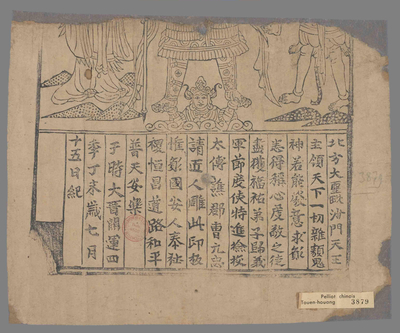 北方大聖毗沙門天王
主領天下一切雜類鬼
神若能發意求願
悉得稱心虔敬之徒
盡獲福祐弟子歸義
軍節度使特進檢校
太傅譙郡曹元忠
請匠人雕此印板
惟願國安人泰社
稷恒昌道路和平
普天安樂
于時大晉開運四
年丁未歲七月
十五日紀
Pelliot chinois
Touen-houang 3879